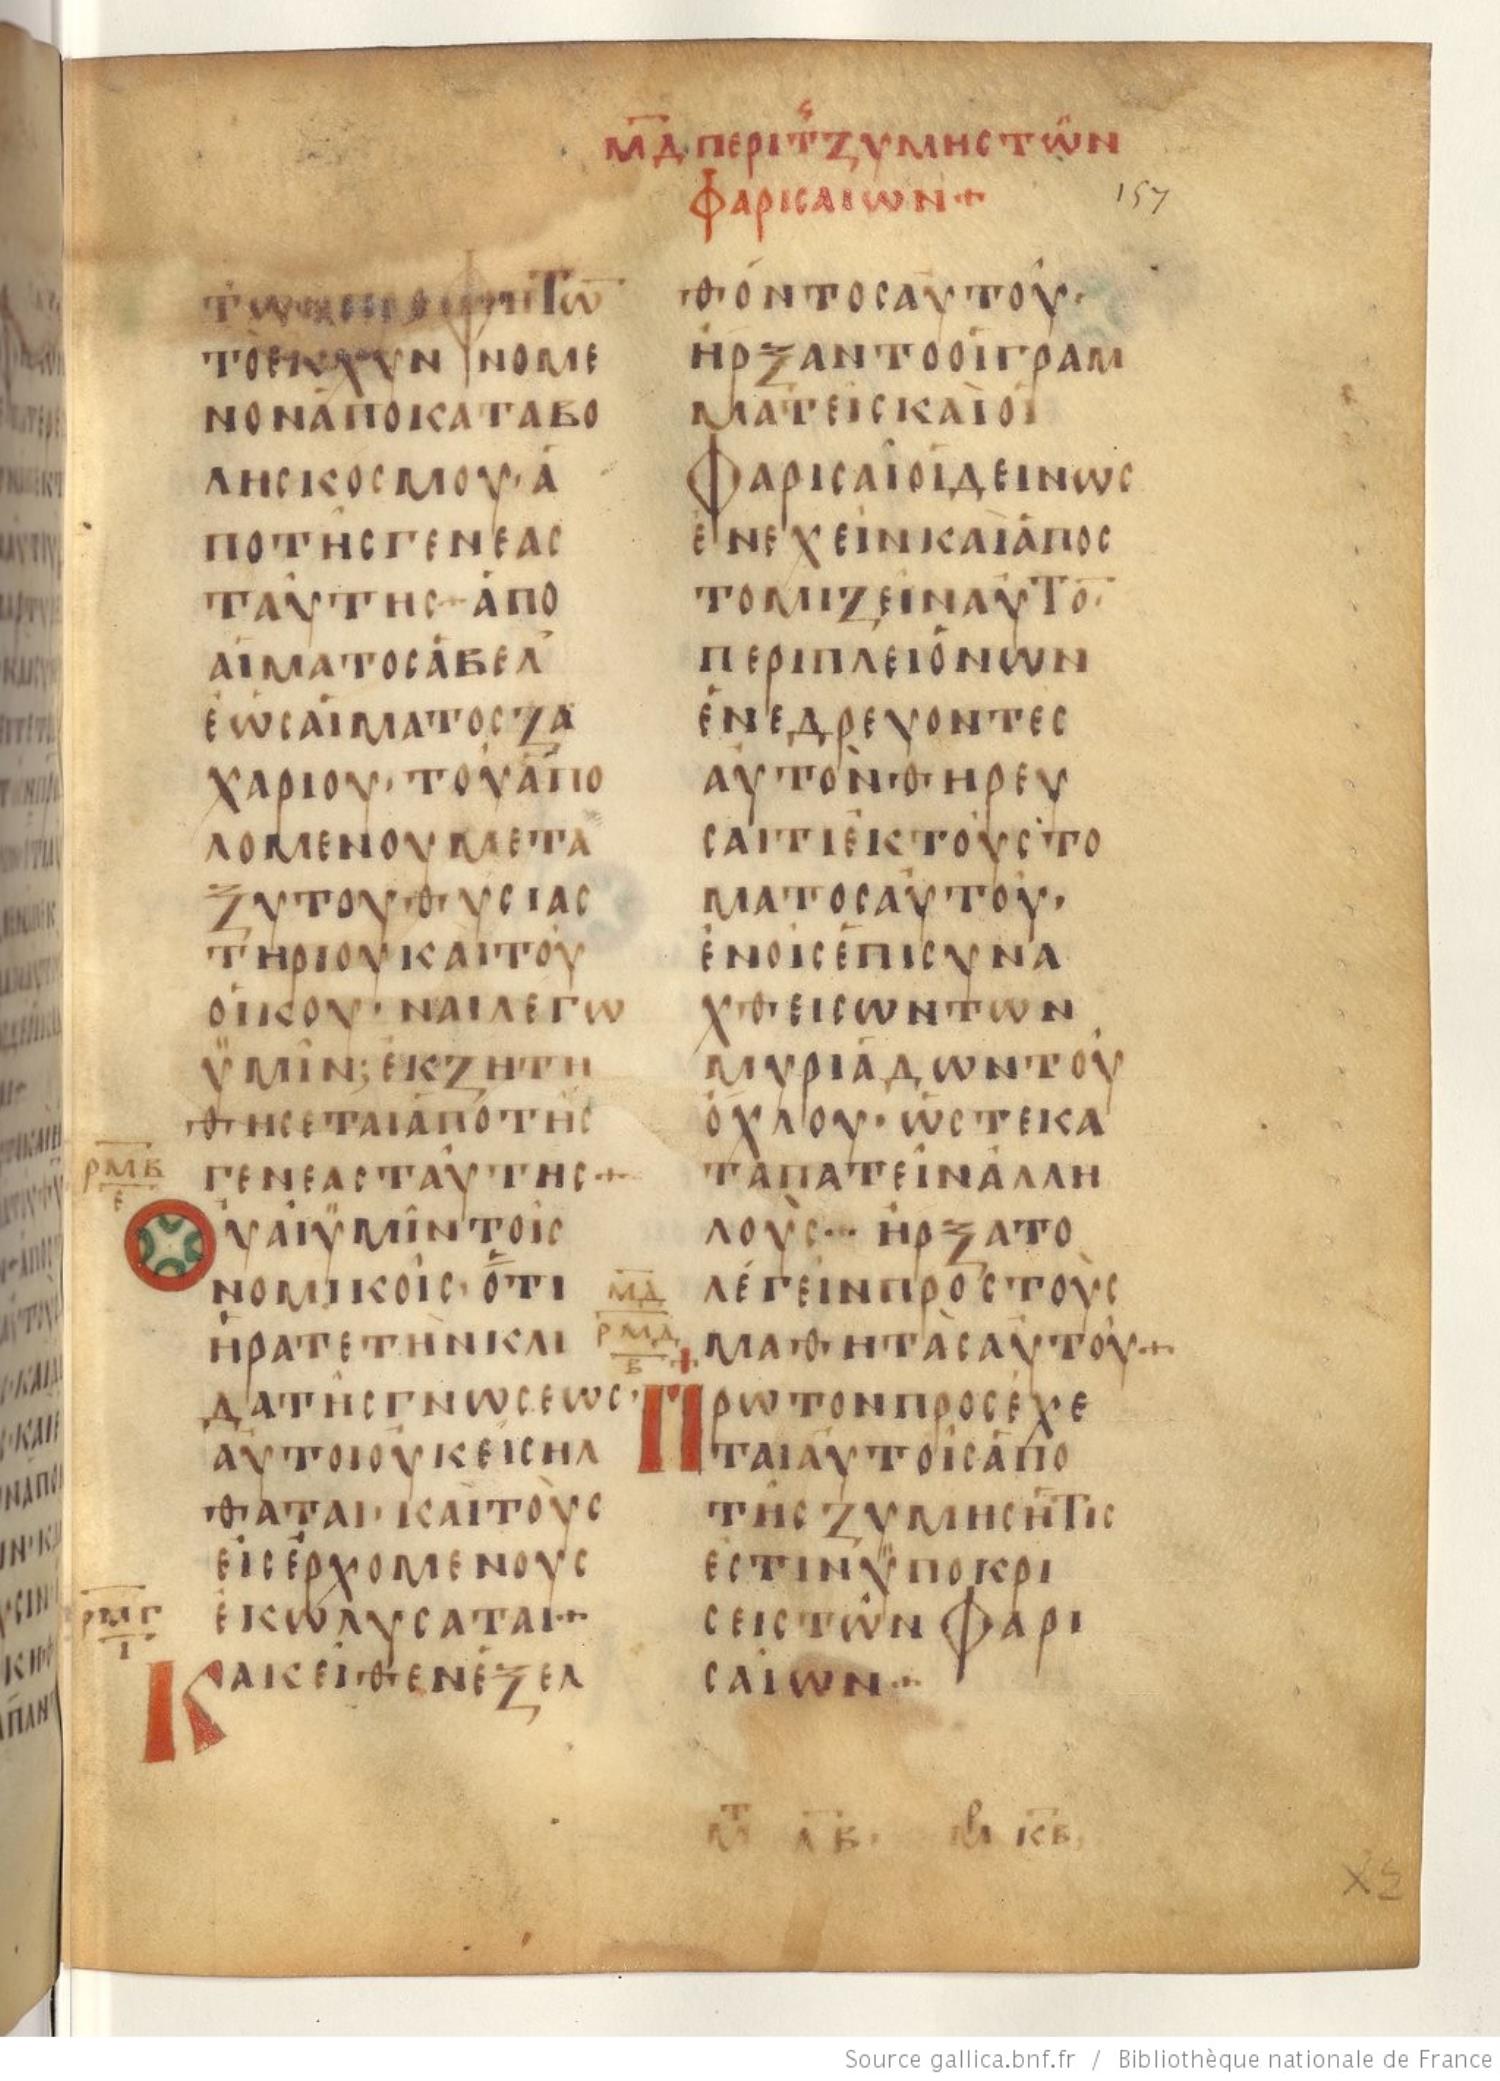 ΜΔ ΠΕΡΙ Τς ΖΥΜΗΣ ΤΩΝ
ΦΑΡΙΣΑΙΩΝ+
157
ΤΟΕΚΧΥΝΝΟΜΕ
ΝΟΝΑΠΟΚΑΤΑΒΟ
ΛΗΣΚΟΣΜΟΥ·Α
ΠΟΤΗΣΓΕΝΕΑΣ
ΤΑΥΤΗΣ+ΑΠΟ
ΑΙΜΑΤΟΣΑΒΕΛ
ΕΩΣΑΙΜΑΤΟΣΖΑ
ΧΑΡΙΟΥ·ΤΟΥΑΠΟ
ΛΟΜΕΝΟΥΜΕΤΑ
ΞΥΤΟΥΘΥΣΙΑΣ
ΤΗΡΙΟΥΚΑΙΤΟΥ
ΟΙΚΟΥ·ΝΑΙΛΕΓΩ
ΫΜΙΝ;ΕΚΖΗΤΗ
ΘΗΣΕΤΑΙΑΠΟΤΗΣ
ΡΜΒ
Ε
ΓΕΝΕΑΣΤΑΥΤΗΣ+
ΟΥΑΙΫΜΙΝΤΟΙΣ
ΝΟΜΙΚΟΙΣ·ΟΤΙ
ΗΡΑΤΕΤΗΝΚΛΙ
ΔΑΤΗΣΓΝΩΣΕΩΣ·
ΑΥΤΟΙΟΥΚΕΙΣΗΛ
ΘΑΤΑΙ·ΚΑΙΤΟΥΣ
ΕΙΣΕΡΧΟΜΕΝΟΥΣ
ΡΜΓ
Ι
ΕΚΩΛΥΣΑΤΑΙ+
ΚΑΚΕΙΘΕΝΕΞΕΛ
ΘΟΝΤΟΣΑΥΤΟΥ·
ΗΡΞΑΝΤΟΟΙΓΡΑΜ
ΜΑΤΕΙΣΚΑΙΟΙ
ΦΑΡΙΣΑΙΟΙΔΕΙΝΩΣ
ΕΝΕΧΕΙΝΚΑΙΑΠΟΣ
ΤΟΜΙΖΕΙΝΑΥΤΟ̅·
ΠΕΡΙΠΛΕΙΟΝΩΝ
ΕΝΕΔΡΕΥΟΝΤΕΣ
ΑΥΤΟΝΘΗΡΕΥ
ΣΑΙΤΙΕΚΤΟΥΣΤΟ
ΜΑΤΟΣΑΥΤΟΥ·
ΕΝΟΙΣΕΠΙΣΥΝΑ
ΧΘΕΙΣΩΝΤΩΝ
ΜΥΡΙΑΔΩΝΤΟΥ
ΟΧΛΟΥ·ΩΣΤΕΚΑ
ΤΑΠΑΤΕΙΝΑΛΛΗ
ΛΟΥΣ··ΗΡΞΑΤΟ
ΜΔ
ΛΕΓΕΙΝΠΡΟΣΤΟΥΣ
ΡΜΔ
Β
ΜΑΘΗΤΑΣΑΥΤΟΥ+
ΠΡΩΤΟΝΠΡΟΣΕΧΕ
ΤΑΙΑΥΤΟΙΣΑΠΟ
ΤΗΣΖΥΜΗΣΗΤΙΣ
ΕΣΤΙΝΫΠΟΚΡΙ
ΣΕΙΣΤΩΝΦΑΡΙ
ΣΑΙΩΝ+
ΜΤ ΛΒ· ΜΡ ΚΒ,
Source gallica.bnf.fr / Bibliothèque nationale de France